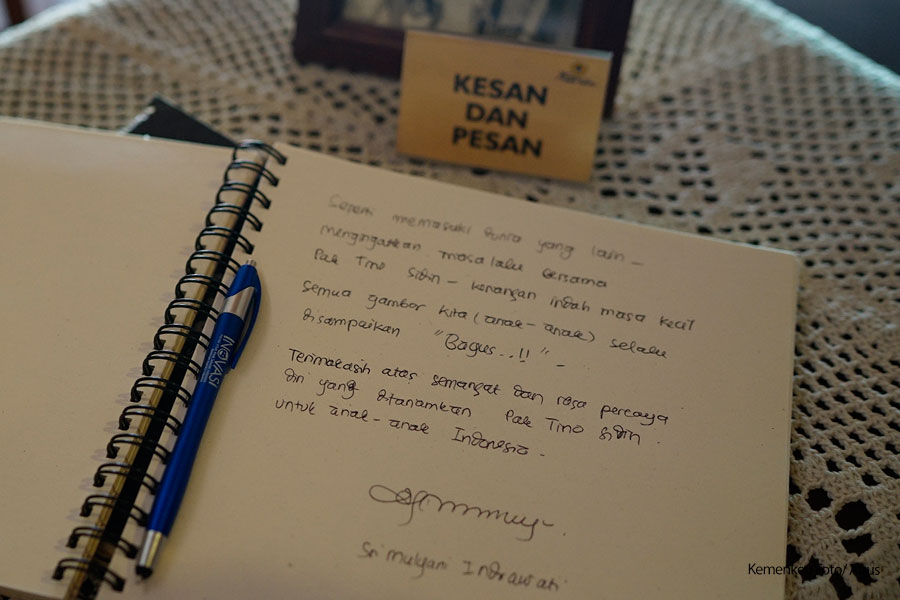 KESAN
DAN
PESAN
Seperti memasuki dunia yang lain -
mengingatkan masa lalu bersama
Pak Tino Sidin - kenangan indah masa kecil
Semua gambar kita (anak-anak) selalu
disampaikan "Bagus..!!" -
Terimakasih atas semangat dan rasa percaya
diri yang ditanamkan Pak Tino Sidin
untuk anak-anak Indonesia.
Sri Mulyani Indrawati
INOVASI
Kemenkeu